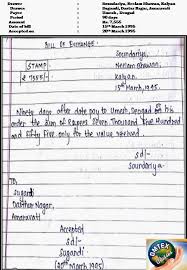 Drawer Soundariya, Neelam Bhavan, Kalyan
Drawee Sugandi, Dastur Nagar, Amaravati
Payee Umesh, Dengad
Period 90 days
Amount Rs. 7,555
Date of bill 15th March 1995
Accepted on 20th March 1995
BILL OF EXCHANGE.
Soundariya,
STAMP Neelam Bhavan,
₹ 7555/- Kalyan.
15th March, 1995.
Ninety days after date pay to Umesh, Dengad on his
order the sum of Rupees Seven Thousand Five Hundred
and Fifty Five only for the value received.
Sd/-
Soundariya
To,
Sugandi
Dastur Nagar,
Amaravati
Accepted
Sd/-
Sugandi
(20th March 1995)
OMTEX